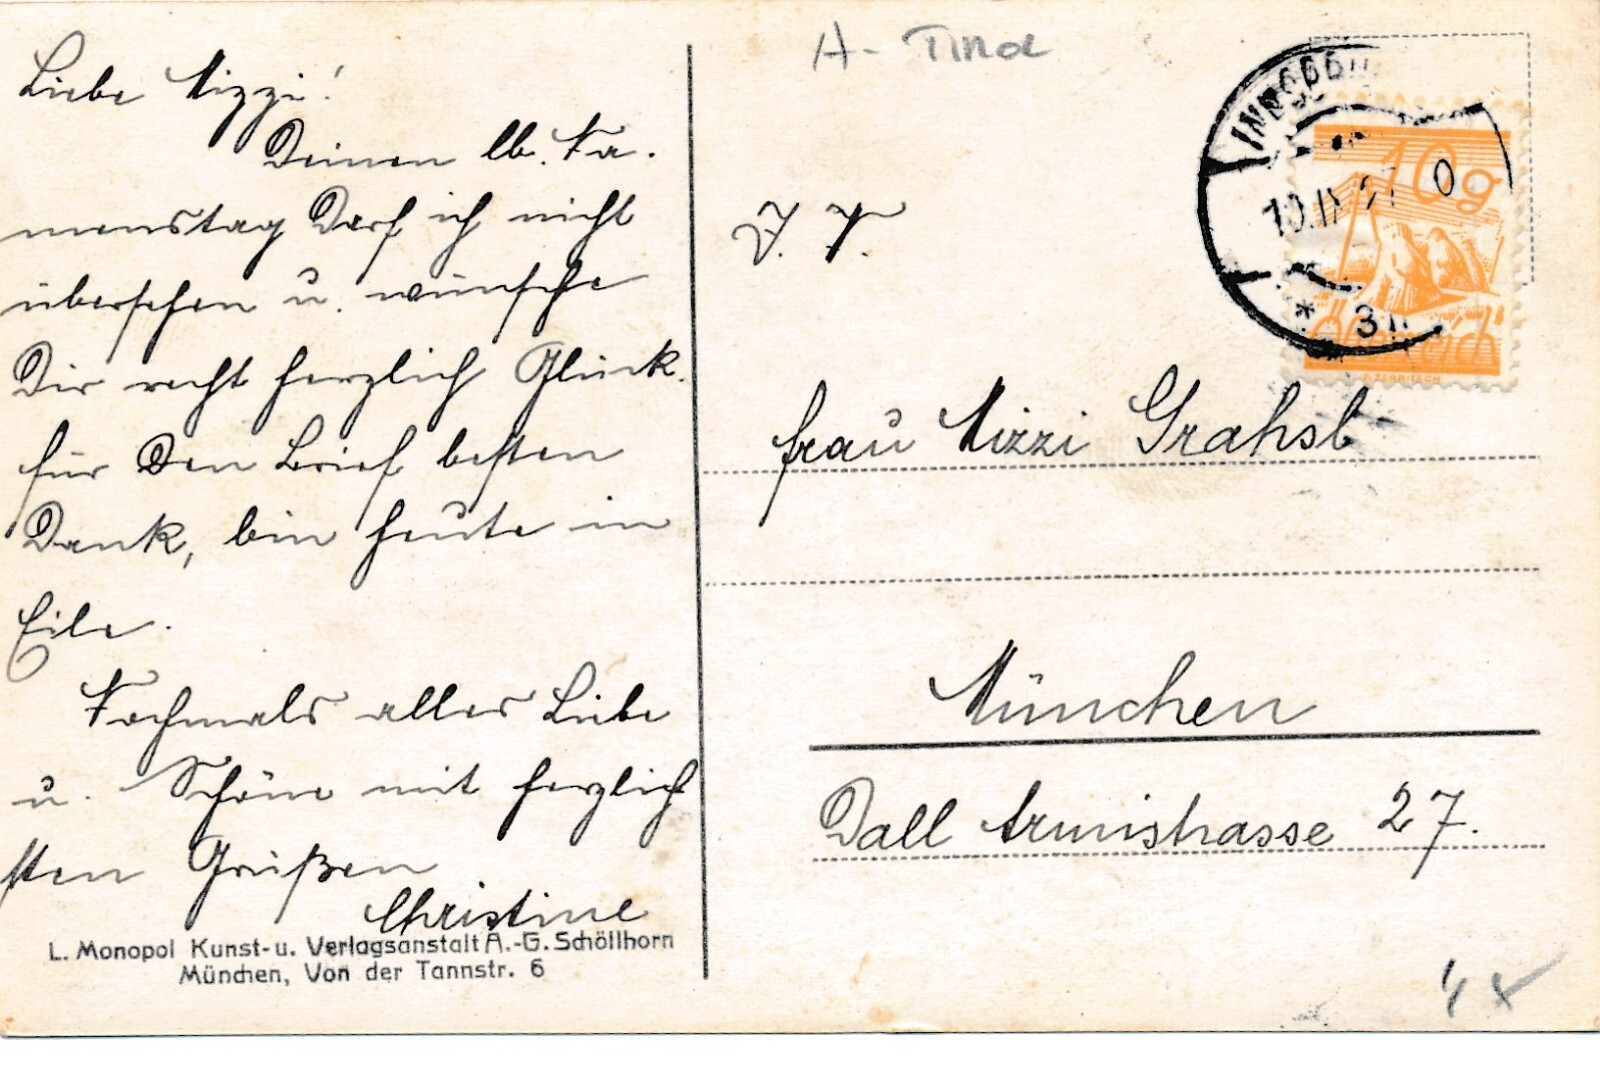 Liebe Mizzi!
Deinen lb. Na-
menstag Darf ich nicht
übersehen u. wünsche
Dir recht herzlich Glück.
für Den Brief besten
Dank, bin heute in
Eile.
Nochmals alles Liebe
u. Schöne mit herzlich
sten Grüßen
Christine
L. Monopol Kunst- u. Verlagsanstalt A.-G. Schöllhorn
München, Von der Tannstr. 6
A- Tirol
10.IX.27
* 3
10g
Österreich
Frau Mizzi Grahsl
München
Dall Armistrasse 27.